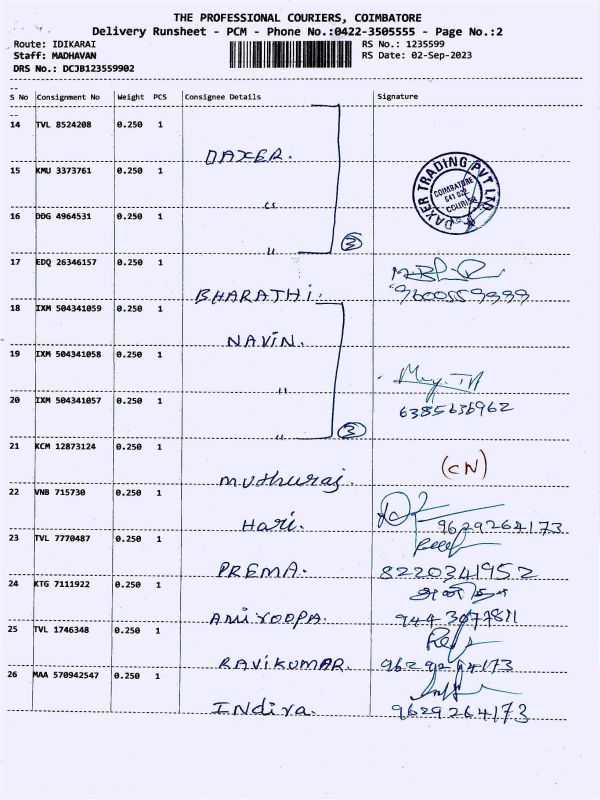 THE PROFESSIONAL COURIERS, COIMBATORE
Delivery Runsheet - PCM - Phone No.:0422-3505555 - Page No.:2
Route: IDIKARAI RS No.: 1235599
Staff: MADHAVAN RS Date: 02-Sep-2023
DRS No.: DCJB123559902
S No Consignment No Weight PCS Consignee Details Signature
14 TVL 8524208 0.250 1
DAXER.
15 KMU 3373761 0.250 1
"
DAXER TRADING PVT LTD
COIMBATORE
COURIER
16 DDG 4964531 0.250 1
" 3
17 EDQ 26346157 0.250 1
BHARATHI. 9600559999
18 IXM 504341059 0.250 1
NAVIN.
19 IXM 504341058 0.250 1
"
20 IXM 504341057 0.250 1 6385636962
" 3
21 KCM 12873124 0.250 1 (CN)
Muthuraj.
22 VNB 715730 0.250 1
Hari. 9629264173
23 TVL 7770487 0.250 1
PREMA. 8220341952
24 KTG 7111922 0.250 1
AMIROOPA.
25 TVL 1746348 0.250 1
RAVIKUMAR. 9629264173
26 MAA 570942547 0.250 1
INdira. 9629264173